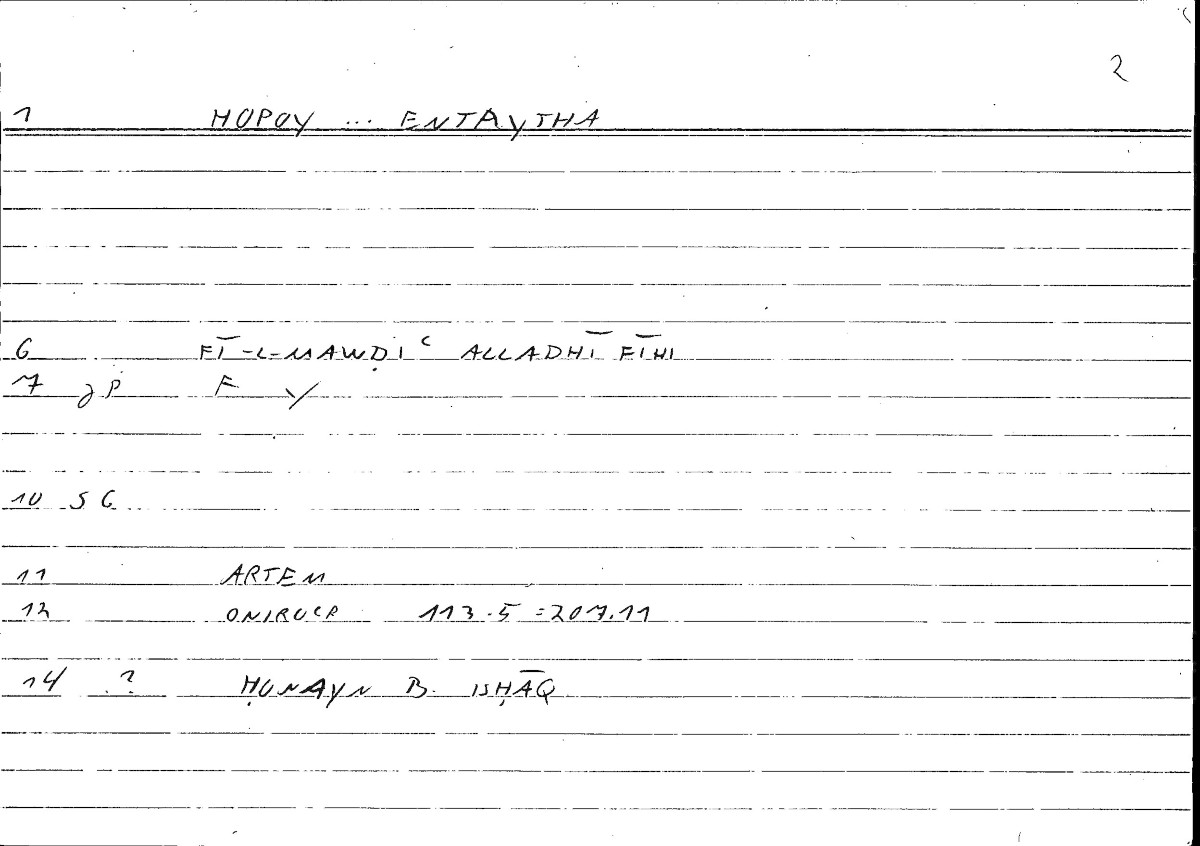 2
1 HOPOY ... ENTAYTHA
6 FĪ-L-MAWḌIʿ ALLADHĪ FĪHI
7 JP F Y
10 SG
11 ARTEM
12 ONIROCR 113.5 = 207.11
14 ? ḤUNAYN B. ISḤĀQ